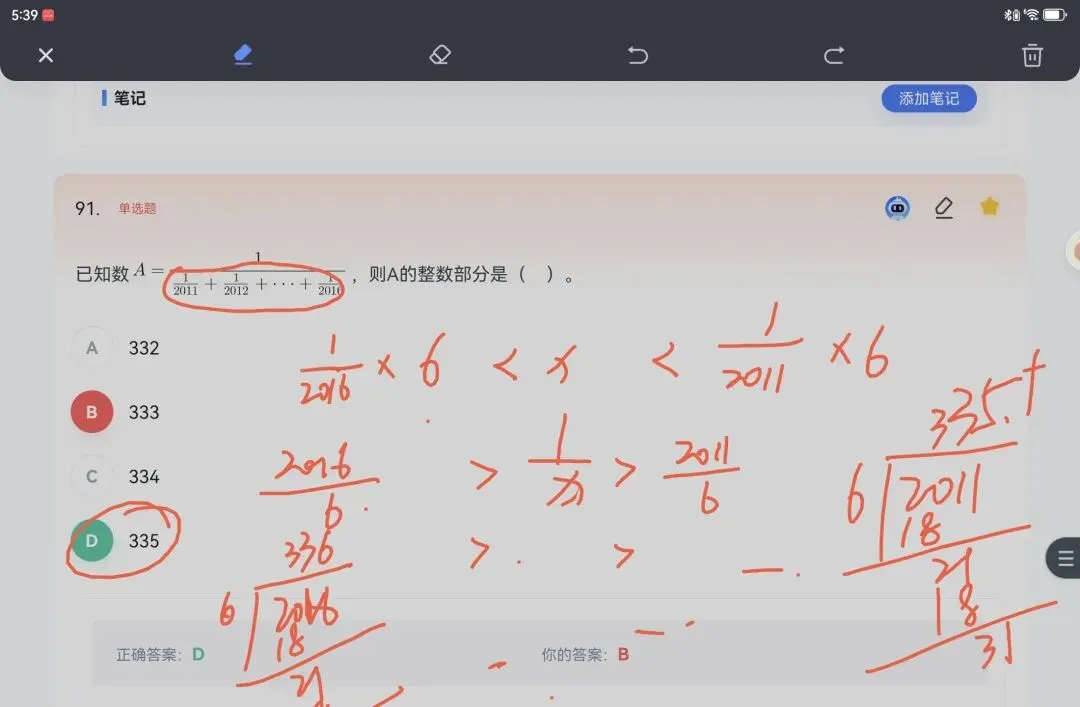 5:39
笔记
添加笔记
91. 单选题
已知数 A = 1 / (1/2011 + 1/2012 + ··· + 1/2016) ，则A的整数部分是（ ）。
A 332
B 333
C 334
D 335
1/2016 × 6 < x < 1/2011 × 6
2016/6 > 1/x > 2011/6
336 > >
6 2016
18
21
335.+
6 2011
18
21
18
31
正确答案: D
你的答案: B